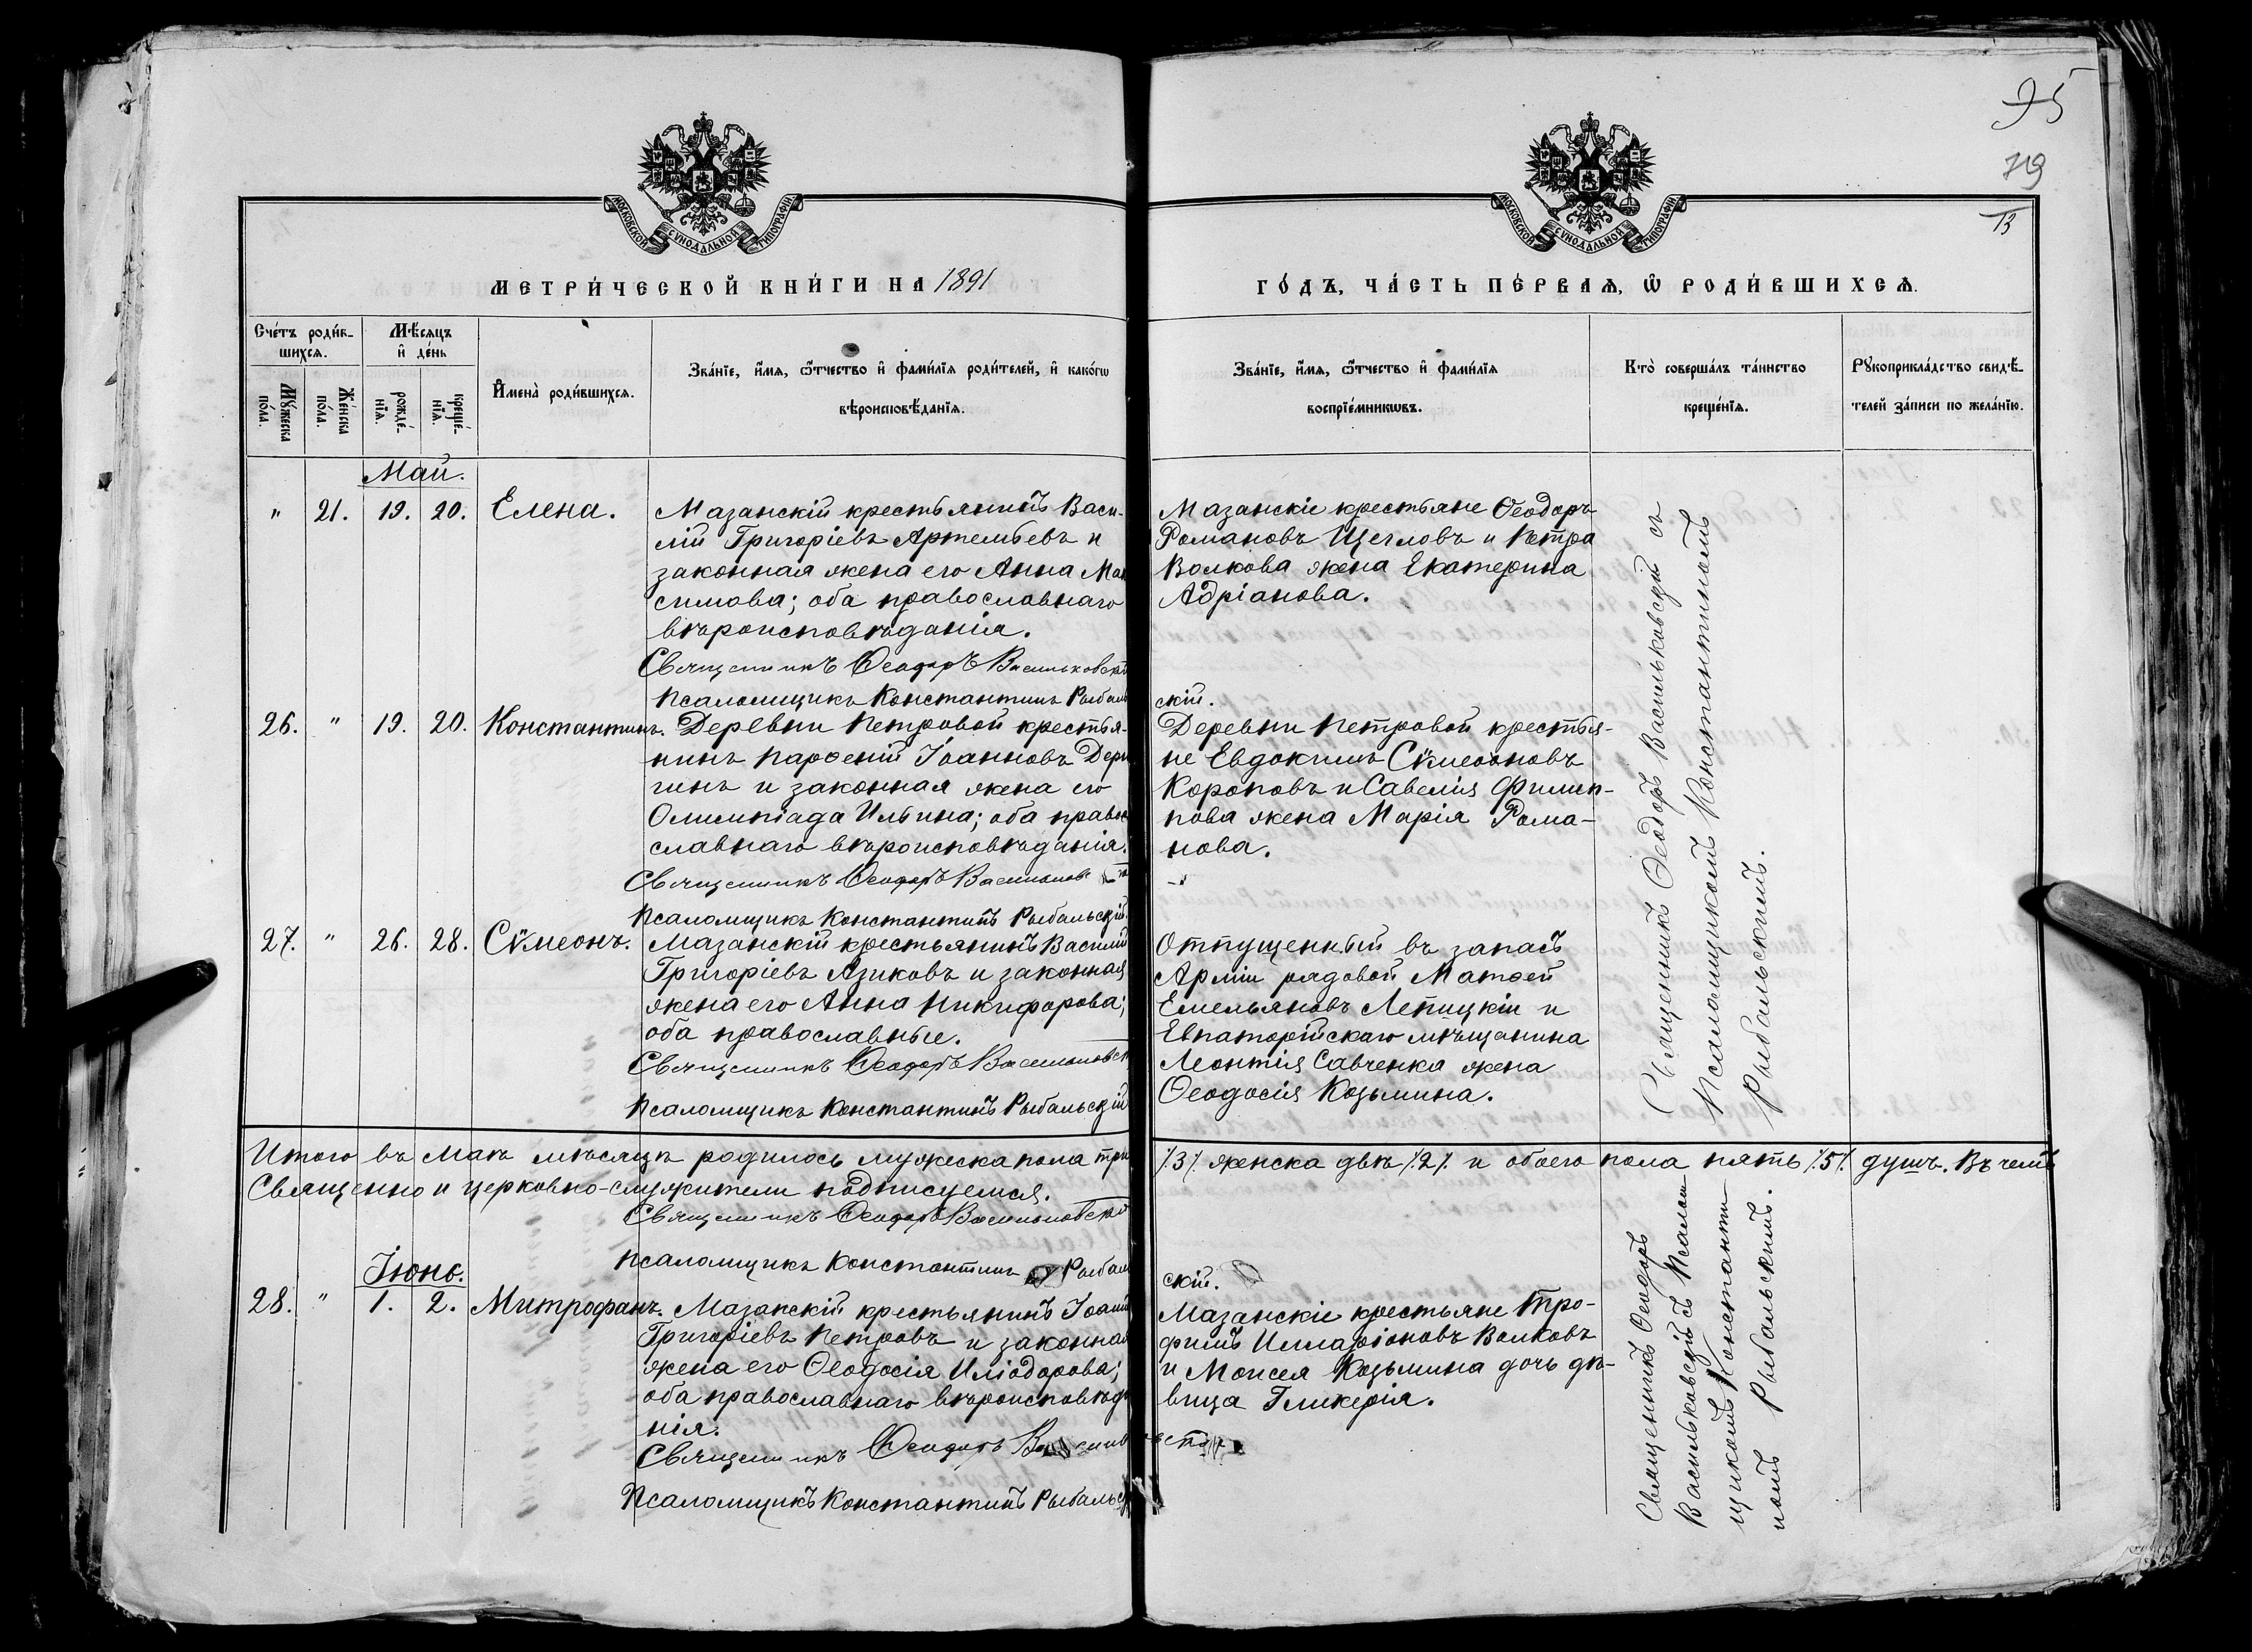 95
79
13
МОСКОВСКОЙ СѴНОДАЛЬНОЙ ТИПОГРАФІИ
МОСКОВСКОЙ СѴНОДАЛЬНОЙ ТИПОГРАФІИ
МЕТРИ́ЧЕСКОЙ КНИ́ГИ НА 1891
ГО́ДЪ, ЧА́СТЬ ПЕ́РВАЯ, Ѡ РОДИ́ВШИХСЯ.
Сче́тъ роди́в-
шихся.
Мѣ́сяцъ
и҆ де́нь
Мꙋ́жеска
по́ла.
Же́нска
по́ла.
рожде́-
нїя.
креще́-
нїя.
И҆мена̀ роди́вшихся.
Зва́нїе, и҆́мя, ѻ҆́тчество и҆ фами́лїя роди́телей, и҆ како́гѡ
вѣроисповѣ́данїя.
Зва́нїе, и҆́мя, ѻ҆́тчество и҆ фами́лїя
воспрїе́мникѡвъ.
Кто̀ соверша́лъ та́инство
креще́нїя.
Рꙋкоприкла́дство свидѣ́-
телей за́писи по жела́нїю.
Май.
" 21. 19. 20. Елена.
Мазанскій крестьянинъ Васи-
лій Григоріевъ Артемьевъ и
законная жена его Анна Мак
симова; оба православнаго
вѣроисповѣданія.
Священникъ Ѳеодоръ Васильковскій
Псаломщикъ Константинъ Рыбаль
скій.
Мазанскіе крестьяне Ѳеодоръ
Романовъ Щегловъ и Петра
Волкова жена Екатерина
Адріанова.
26. " 19. 20. Константинъ.
Деревни Петровой крестья-
нинъ Парѳеній Іоанновъ Дерю
гинъ и законная жена его
Олимпіада Ильина; оба право
славнаго вѣроисповѣданія.
Священникъ Ѳеодоръ Васильков
Псаломщикъ Константинъ Рыбальскій
Деревни Петровой крестья-
не Евдокимъ Сѵмеоновъ
Короповъ и Савелія Филип-
пова жена Марія Рома-
нова.
27. " 26. 28. Сѵмеонъ.
Мазанскій крестьянинъ Василій
Григоріевъ Азиковъ и законная
жена его Анна Никифорова;
оба православные.
Священникъ Ѳеодоръ Васильковск
Псаломщикъ Константинъ Рыбальскій
Отпущенный въ запасъ
Арміи рядовой Матѳей
Емельяновъ Лепицкій и
Евпаторійскаго мѣщанина
Леонтія Савченка жена
Ѳеодосія Козьмина.
Священникъ Ѳеодоръ Васильковскій съ
Псаломщикомъ Константиномъ
Рыбальскимъ.
Итого въ Маѣ мѣсяцѣ родилось мужеска пола три /3/ женска двѣ /2/ и обоего пола пять /5/ душъ. Въ чемъ
Священно и церковно-служители подписуемся.
Священникъ Ѳеодоръ Васильковскій
Псаломщикъ Константинъ Рыбаль
скій.
Іюнь.
28. " 1. 2. Митрофанъ.
Мазанскій крестьянинъ Іоанн
Григоріевъ Петровъ и законная
жена его Ѳеодосія Иліодорова;
оба православнаго вѣроисповѣда
нія.
Священникъ Ѳеодоръ
Псаломщикъ Константинъ Рыбальск
Мазанскіе крестьяне Тро-
фимъ Илларіоновъ Волковъ
и Моисея Козьмина дочь дѣ-
вица Гликерія.
Священникъ Ѳеодоръ
Васильковскій съ Псалом
щикомъ Константи
номъ Рыбальскимъ.